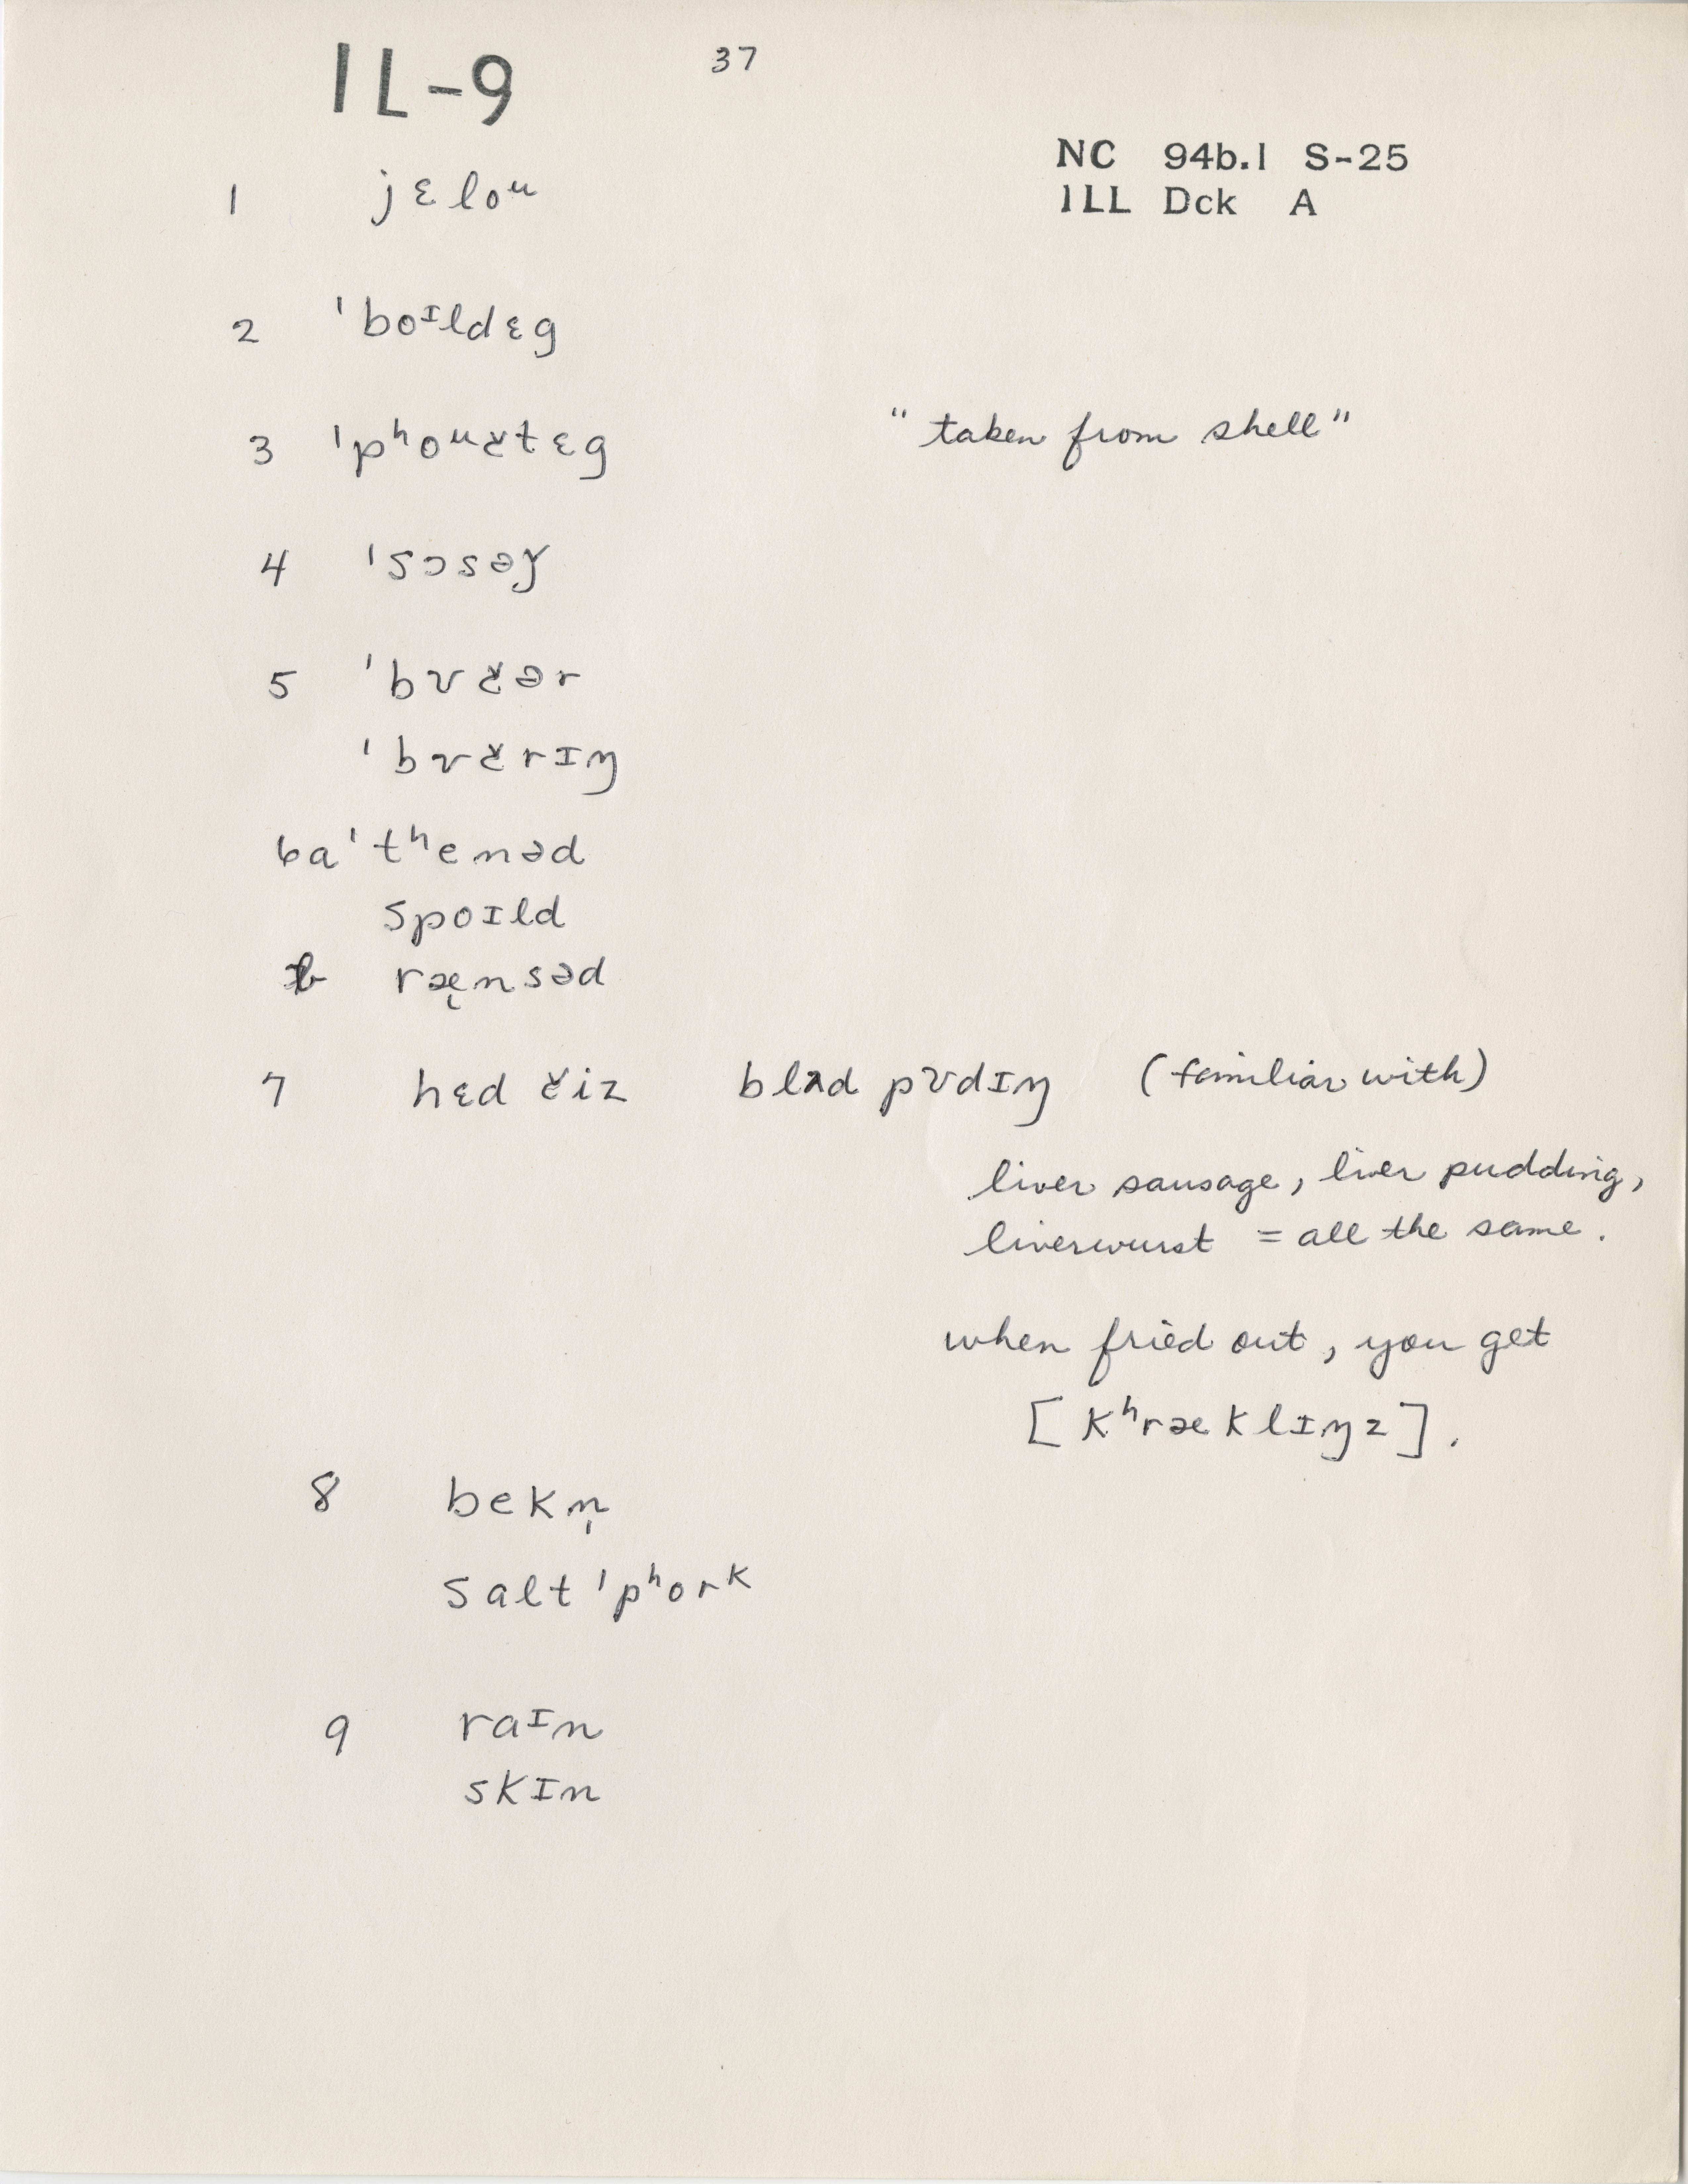 IL-9 37
NC 94b.1 S-25
ILL Dck A
1 jɛloᵘ
2 ˈboᶦldɛg
3 ˈpʰoᵘčtɛg "taken from shell"
4 ˈsɔsəǰ
5 ˈbʊčər
ˈbʊčrɪŋ
6a ˈtʰenəd
spoɪld
b ræ̨nsəd
7 hɛd čiz blʌd pʊdɪŋ (familiar with)
liver sausage, liver pudding,
liverwurst = all the same.
when fried out, you get
[kʰræklɪŋz].
8 bekn̩
salt ˈpʰorᵏ
9 raᶦn
skɪn